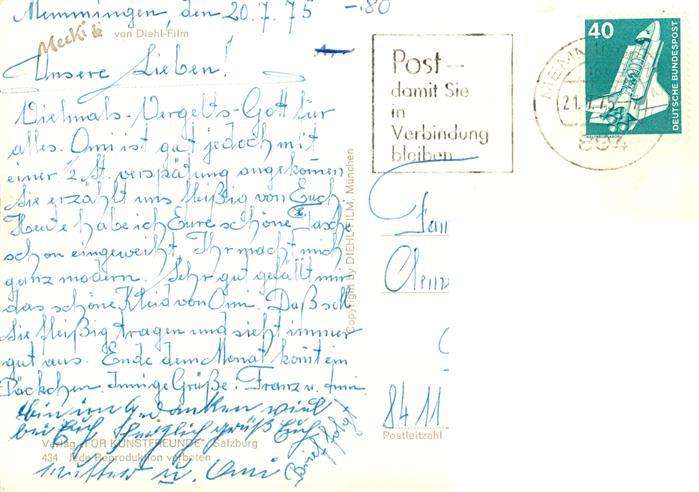 Memmingen, den 20.7.75 -.80
Mecki
von Diehl-Film
Unsere Lieben!
Vielmals-Vergelts-Gott für
alles. Omi ist gut jedoch mit
einer 2 St. verspätung angekomen
Sie erzählt uns fleißig von Euch
Heute habe ich Eure schöne Tasche
schon eingeweiht. Ihr macht mich
ganz modern. Sehr gut gefällt mir
das schöne Kleid von Omi. Daß soll
Sie fleißig tragen und sieht immer
gut aus. Ende dem Monat komt ein
Päckchen. Innige Grüße. Franz u.
bin in Gedanken viel
bei Euch herzlich grüß Euch
Mutter u. Omi
Brief folgt
Verlag "FÜR KUNSTFREUNDE", Salzburg
434 Jede Reproduktion verboten
Copyright by DIEHL-FILM, München
Post –
damit Sie
in
Verbindung
bleiben
40
DEUTSCHE BUNDESPOST
MEMM
21.7.75
894
Fam
8411
Postleitzahl